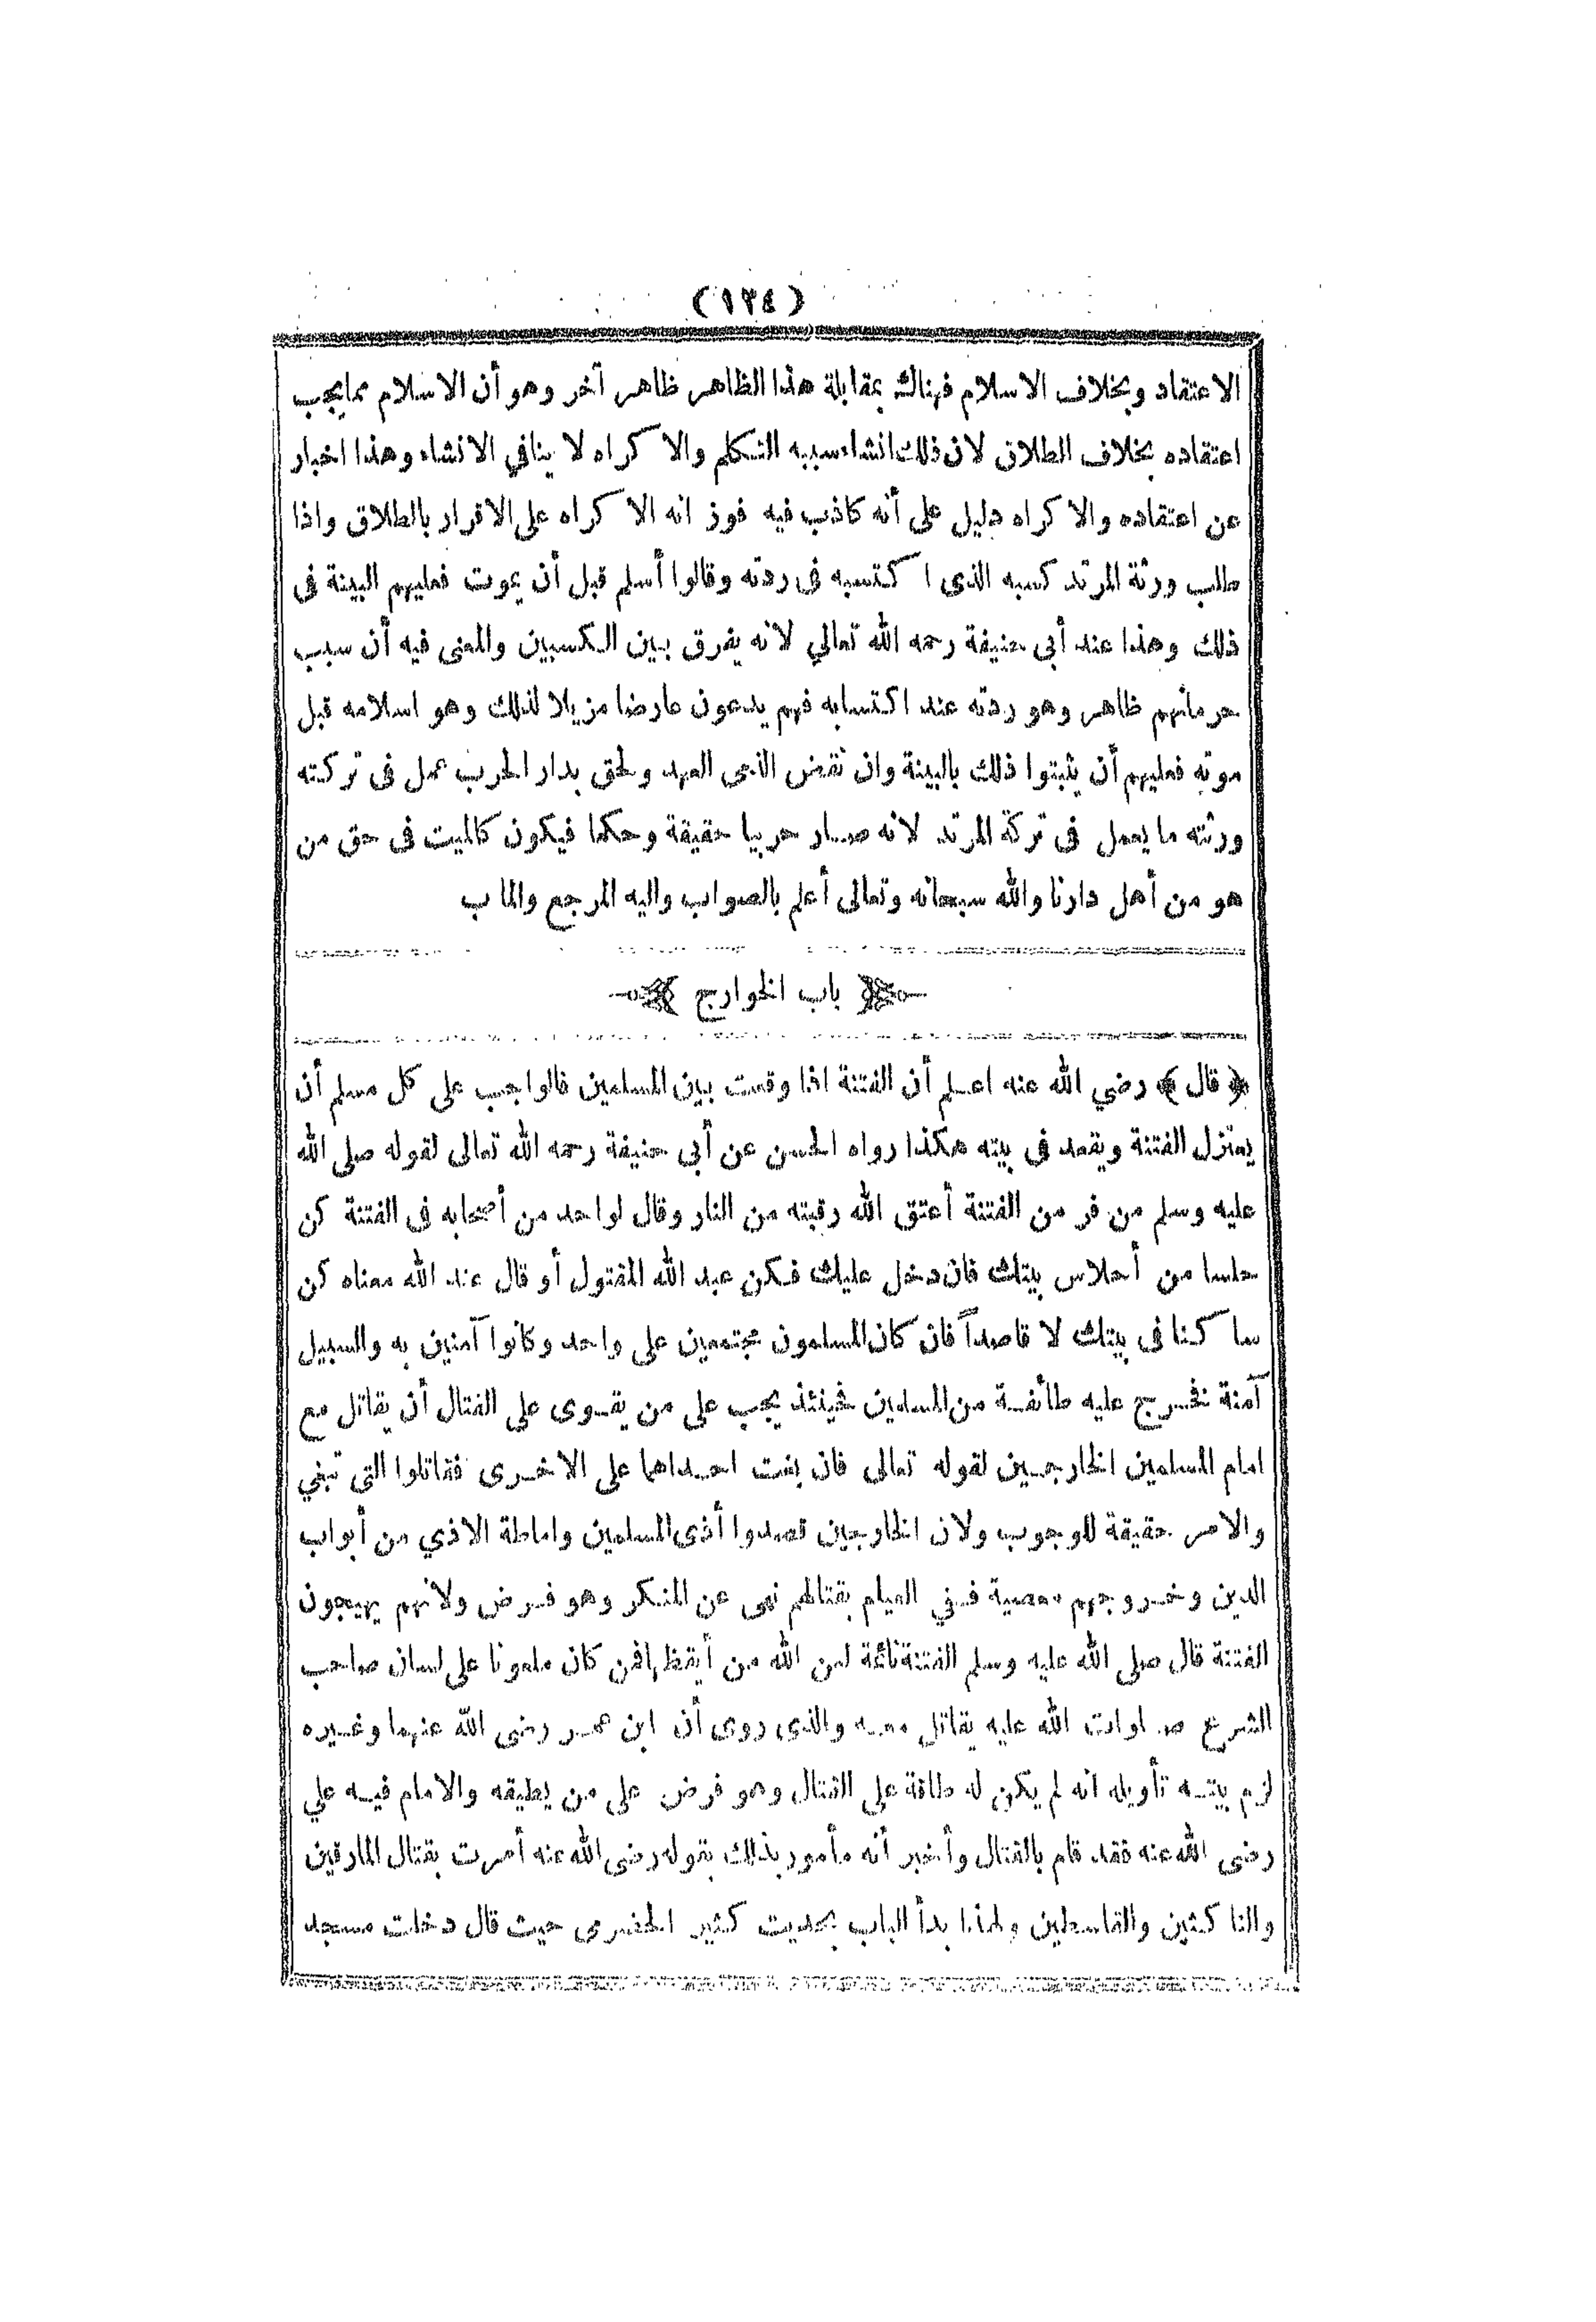 (١٢٤)
الاعتقاد وبخلاف الاسلام فهناك بمقابلة هذا الظاهر ظاهر آخر وهو أن الاسلام مما يجب
اعتقاده بخلاف الطلاق لان ذلك انشاء سببه التكلم والاكراه لا ينافي الانشاء وهذا اخبار
عن اعتقاده والاكراه دليل على أنه كاذب فيه فوزانه الاكراه على الاقرار بالطلاق واذا
طلب ورثة المرتد كسبه الذى اكتسبه فى ردته وقالوا أسلم قبل أن يموت فعليهم البينة فى
ذلك وهذا عند أبى حنيفة رحمه الله تعالي لانه يفرق بين الكسبين والمعنى فيه أن سبب
حرمانهم ظاهر وهو ردته عند اكتسابه فهم يدعون عارضا مزيلا لذلك وهو اسلامه قبل
موته فعليهم أن يثبتوا ذلك بالبينة وان نقض الذمى العهد ولحق بدار الحرب عمل فى تركته
ورثته ما يعمل فى تركة المرتد لانه صار حربيا حقيقة وحكما فيكون كالميت فى حق من
هو من أهل دارنا والله سبحانه وتعالى أعلم بالصواب واليه المرجع والمآب
﴿ باب الخوارج ﴾
﴿ قال ﴾ رضي الله عنه اعلم أن الفتنة اذا وقعت بين المسلمين فالواجب على كل مسلم أن
يعتزل الفتنة ويقعد فى بيته هكذا رواه الحسن عن أبى حنيفة رحمه الله تعالى لقوله صلى الله
عليه وسلم من فر من الفتنة أعتق الله رقبته من النار وقال لواحد من أصحابه فى الفتنة كن
حلسا من أحلاس بيتك فان دخل عليك فكن عبد الله المقتول أو قال عند الله معناه كن
ساكنا فى بيتك لا قاصداً فان كان المسلمون مجتمعين على واحد وكانوا آمنين به والسبيل
آمنة فخرج عليه طائفة من المسلمين فحينئذ يجب على من يقوى على القتال أن يقاتل مع
امام المسلمين الخارجين لقوله تعالى فان بغت احداهما على الاخرى فقاتلوا التى تبغي
والامر حقيقة للوجوب ولان الخارجين قصدوا أذى المسلمين واماطة الاذي من أبواب
الدين وخروجهم معصية ففي القيام بقتالهم نهى عن المنكر وهو فرض ولانهم يهيجون
الفتنة قال صلى الله عليه وسلم الفتنة نائمة لعن الله من أيقظها فمن كان ملعونا على لسان صاحب
الشرع صلوات الله عليه يقاتل معه والذى روى أن ابن عمر رضى الله عنهما وغيره
لزم بيته تأويله انه لم يكن له طاقة على القتال وهو فرض على من يطيقه والامام فيه علي
رضى الله عنه فقد قام بالقتال وأخبر أنه مأمور بذلك بقوله رضى الله عنه أمرت بقتال المارقين
والناكثين والقاسطين ولهذا بدأ الباب بحديث كثير الحضرمى حيث قال دخلت مسجد